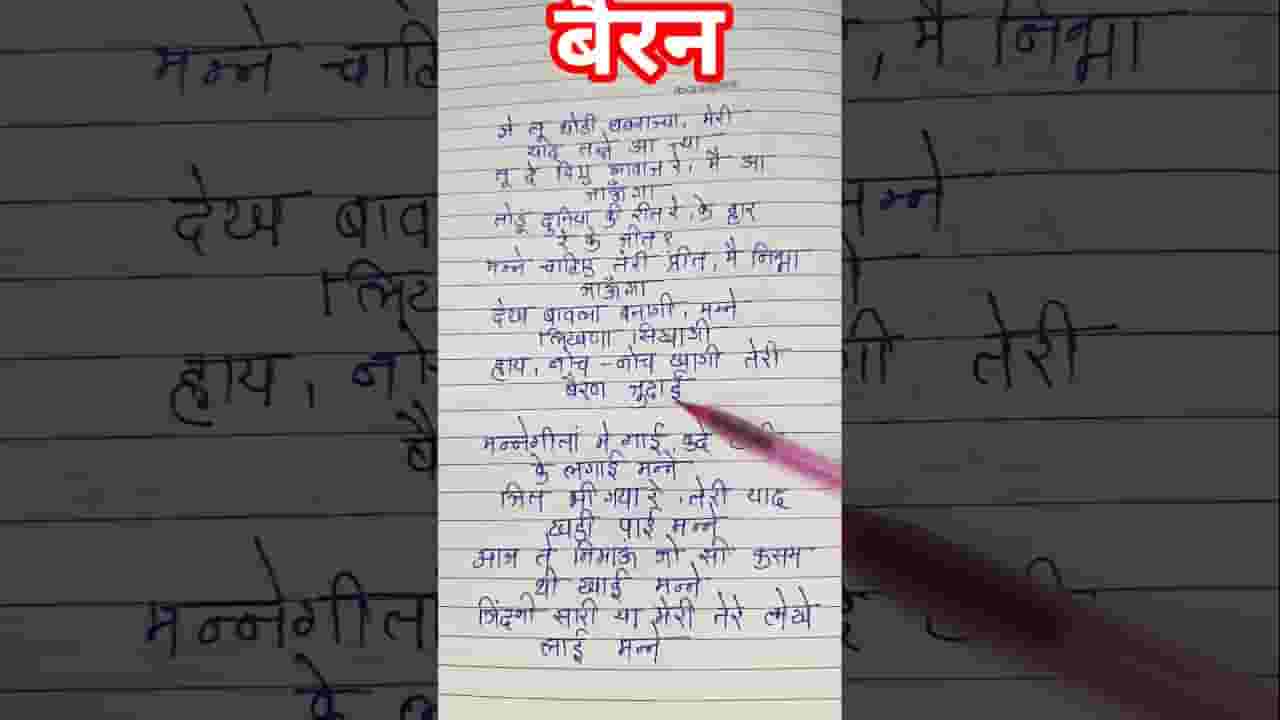 बैरन
जे तू थोडी घबराज्या, मेरी
याद तन्ने आ ज्या
तू दे दिए आवाज रे, मै आ
जाऊँगा
तोडू दुनिया की रीत रे, के हार
रे के जीत रे
मन्ने चाहिए तेरी प्रीत, मै निभा
जाऊँगा
देख बावला बनागी, मन्ने
लिखणा सिखागी
हाय, नोच-नोच खागी तेरी
बैरण जुदाई
मन्नेगीतां मे गाई,
के लगाई मन्ने
जित भी गया रे, तेरी याद
खडी पाई मन्ने
आज ते निभाऊं जो सौ कसम
थी खाई मन्ने
जिंदगी सारी या मेरी तेरे लेखे
लाई मन्ने